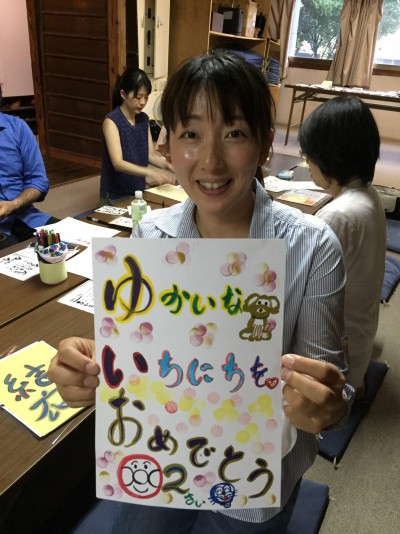 ゆかいな
いちにちを
おめでとう
2さい